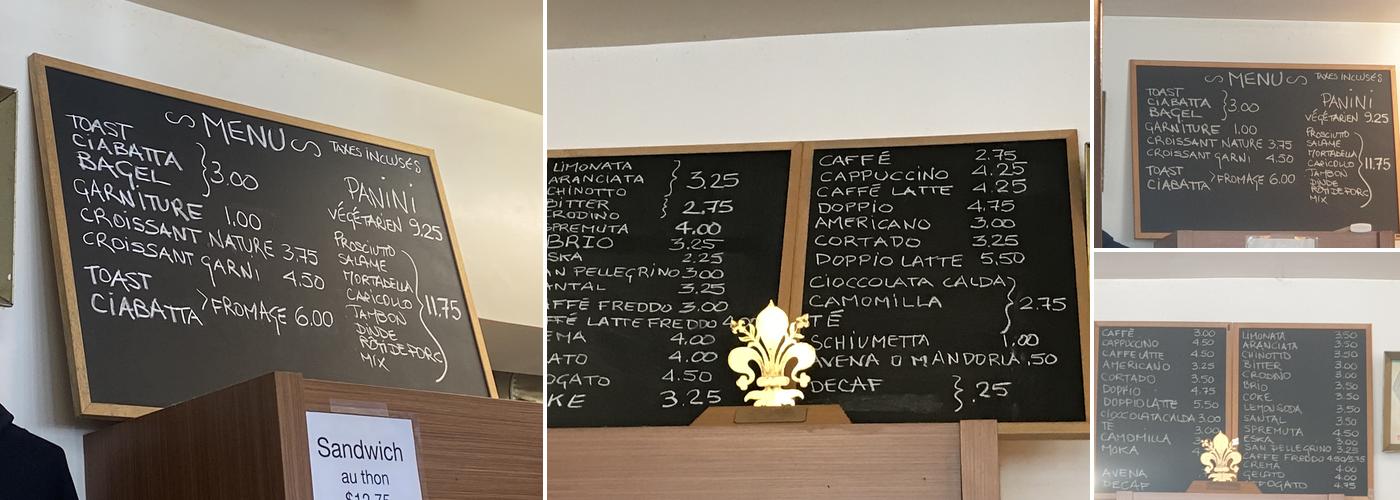 MENU
TAXES INCLUSES
TOAST
CIABATTA
BAGEL
3.00
GARNITURE 1.00
CROISSANT NATURE 3.75
CROISSANT GARNI 4.50
TOAST
CIABATTA
FROMAGE 6.00
PANINI
VÉGÉTARIEN 9.25
PROSCIUTO
SALAME
MORTADELLA
CAPICOLLO
JAMBON
DINDE
RÔTI DE PORC
MIX
11.75
Sandwich
au thon
LIMONATA
ARANCIATA
CHINOTTO
3.25
BITTER
CRODINO
2.75
SPREMUTA 4.00
BRIO 3.25
ESKA 2.25
SAN PELLEGRINO 3.00
SANTAL 3.25
CAFFÉ FREDDO 3.00
CAFFÉ LATTE FREDDO
CREMA 4.00
GELATO 4.00
AFFOGATO 4.50
COKE 3.25
CAFFÉ 2.75
CAPPUCCINO 4.25
CAFFÉ LATTE 4.25
DOPPIO 4.75
AMERICANO 3.00
CORTADO 3.25
DOPPIO LATTE 5,50
CIOCCOLATA CALDA
CAMOMILLA
TÉ
2.75
SCHIUMETTA 1.00
AVENA O MANDORLA .50
DECAF
.25
MENU
TAXES INCLUSES
TOAST
CIABATTA
BAGEL
3.00
GARNITURE 1.00
CROISSANT NATURE 3.75
CROISSANT GARNI 4.50
TOAST
CIABATTA
FROMAGE 6.00
PANINI
VÉGÉTARIEN 9.25
PROSCIUTO
SALAME
MORTADELLA
CAPICOLLO
JAMBON
DINDE
RÔTI DE PORC
MIX
11.75
CAFFÉ 3.00
CAPPUCCINO 4.50
CAFFE LATTE 4.50
AMERICANO 3.25
CORTADO 3.50
DOPPIO 4.75
DOPPIO LATTE 5.50
CIOCCOLATA CALDA 3.00
TE 3.00
CAMOMILLA
MOKA
AVENA
DECAF
LIMONATA 3.50
ARANCIATA 3.50
CHINOTTO 3.50
BITTER 3.00
CRODINO 3.00
BRIO 3.50
COKE 3.50
LEMONSODA 3.50
SANTAL 3.50
SPREMUTA 4.50
ESKA 3.00
SAN PELLEGRINO 3.25
CAFFE FREDDO 4.50/5.75
CREMA 4.00
GELATO 4.00
AFFOGATO 4.75